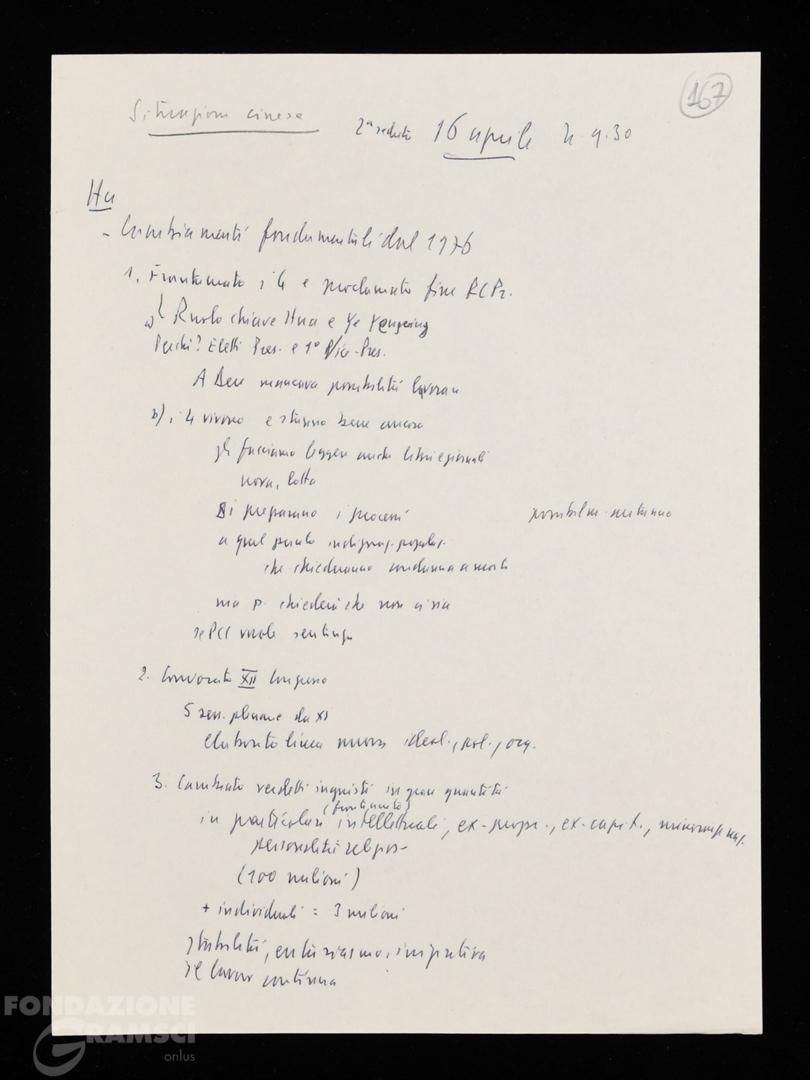 167
Situazione cinese
2ª seduta 16 aprile h. 9.30
Hu
- Cambiamenti fondamentali dal 1976
1. Frantumato i 4 e proclamato fine RCPr.
a) Ruolo chiave Hua e Ye
Perché? Eletti Pres. e 1° Vice-Pres.
A Den mancava possibilità lavorare
b) i 4 vivono e stanno bene ancora
gli facciamo leggere anche libri e giornali
Si preparano i processi
a quel punto indignaz. popolaz.
che chiederanno condanna a morte
ma p. chiederà che non ci sia
se PCI vuole
2. Convocato XII Congresso
5 sess. plenarie da XI
Elaborata linea nuova ideol., pol., org.
3. Cambiato verdetti ingiusti in gran quantità
in particolare intellettuali, ex-propr., ex-capit., minoranze naz.
personalità religiose
(100 milioni)
+ individuali = 3 milioni
stabilità, entusiasmo, iniziativa
Il lavoro continua
FONDAZIONE
GRAMSCI
onlus